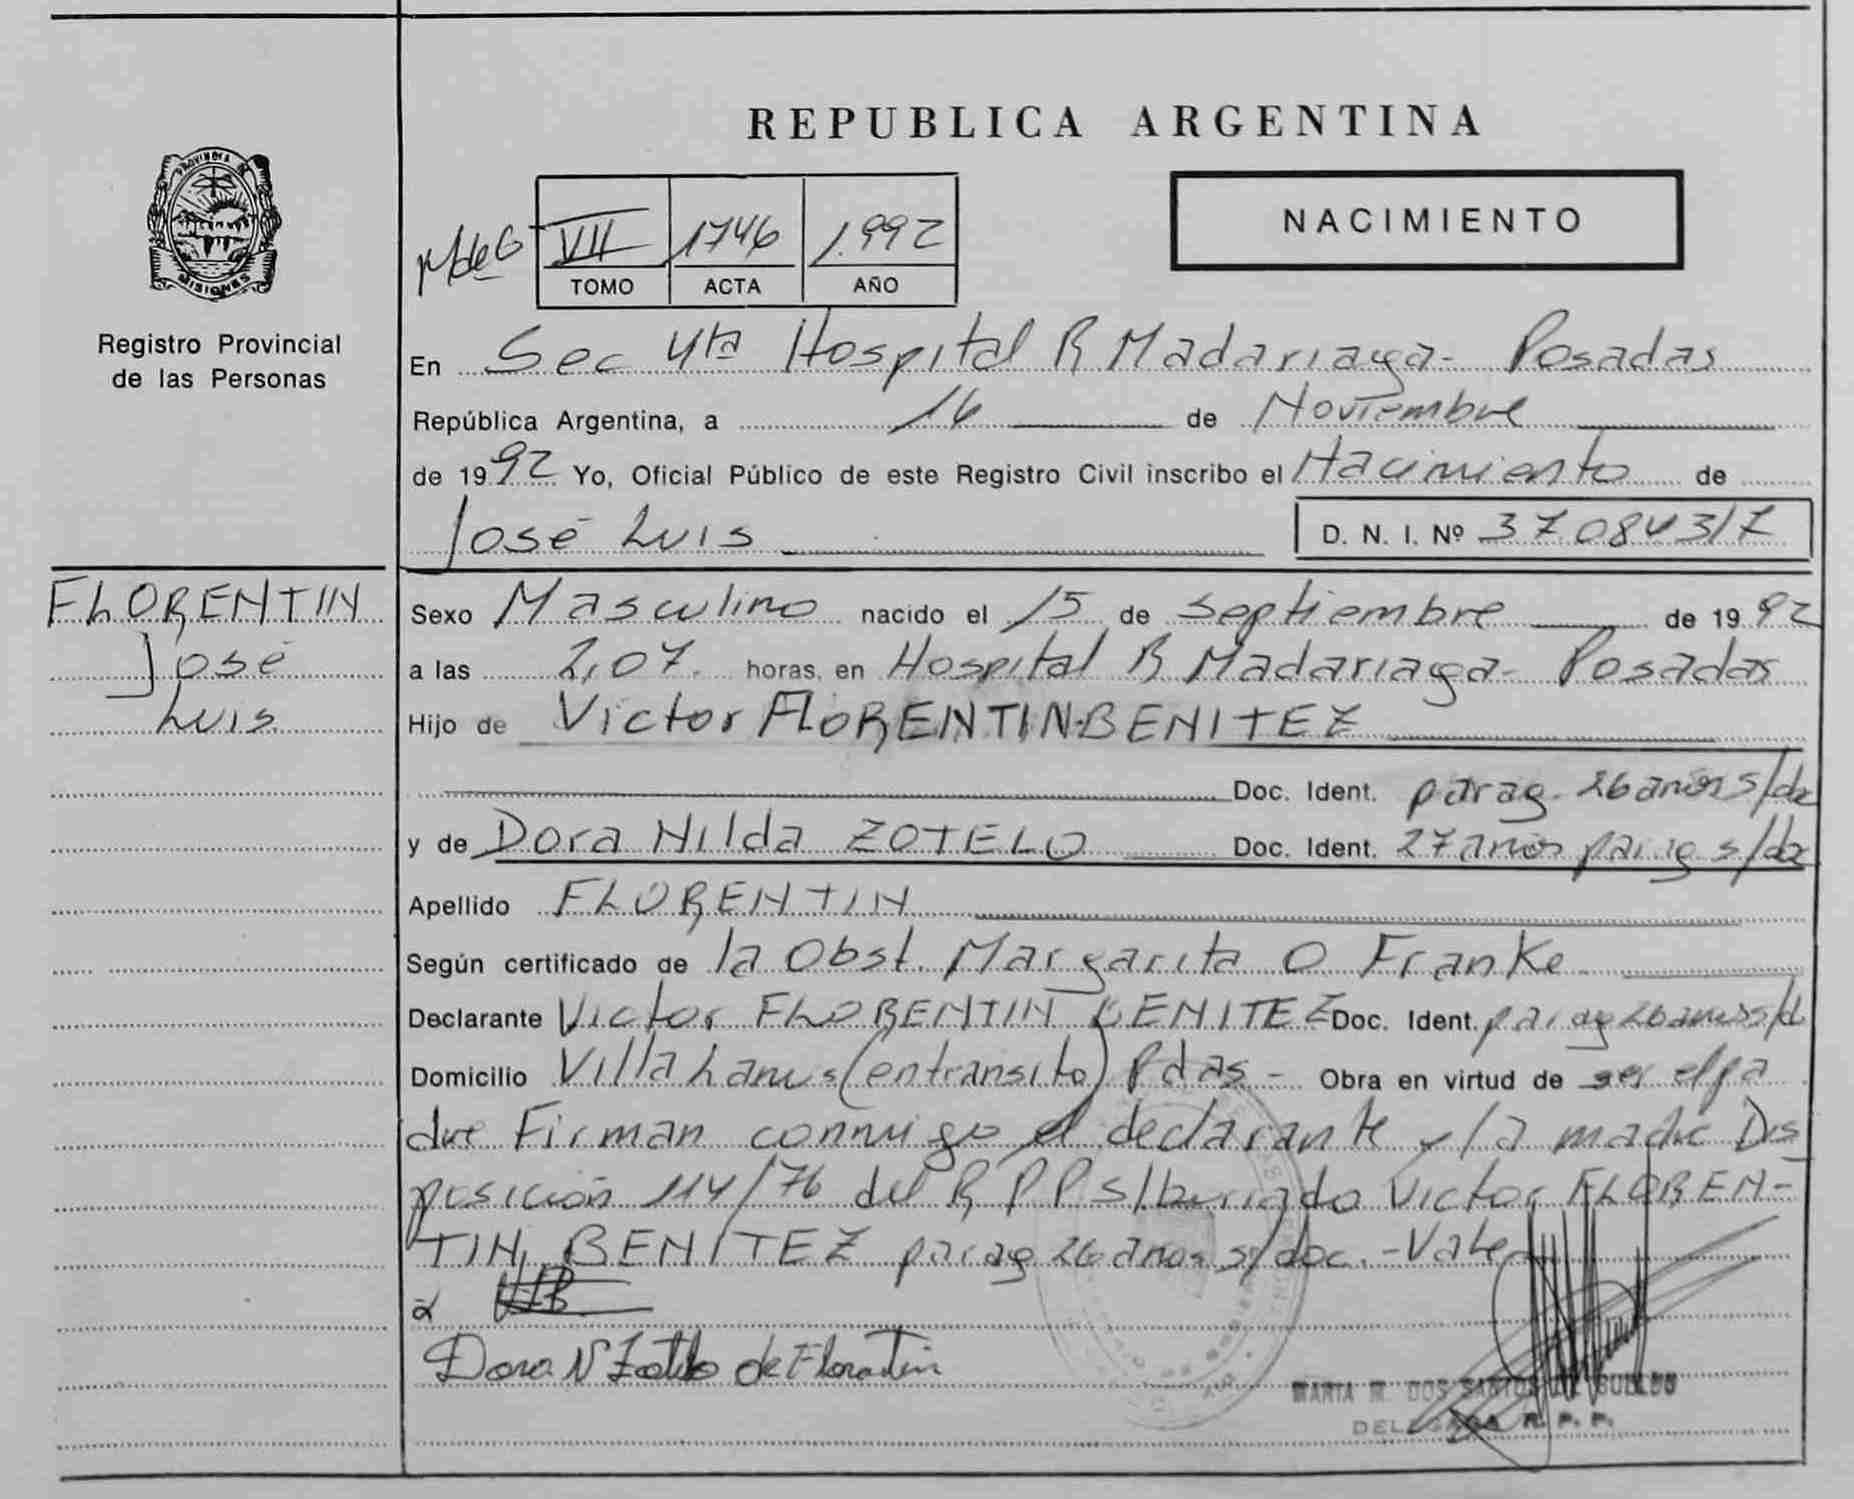 REPUBLICA ARGENTINA
PROVINCIA DE
MISIONES
Registro Provincial
de las Personas
NACIMIENTO
VII 1746 1.992
TOMO ACTA AÑO
En Sec 4ta Hospital R Madariaga - Posadas
República Argentina, a 16 de Noviembre
de 1992 Yo, Oficial Público de este Registro Civil inscribo el Nacimiento de
José Luis D. N. I. Nº 37084317
FLORENTIN
José
Luis
Sexo Masculino nacido el 15 de septiembre de 1992
a las 2,07. horas, en Hospital R Madariaga - Posadas
Hijo de Victor FLORENTIN-BENITEZ
Doc. Ident. parag. 26 años s/doc
y de Dora Nilda ZOTELO Doc. Ident. 27 años parag s/doc
Apellido FLORENTIN
Según certificado de la Obst. Margarita O Franke
Declarante Victor FLORENTIN BENITEZ Doc. Ident. parag 26 años s/d
Domicilio Villa Lanus (en transito) Pdas - Obra en virtud de ser el pa
dre Firman conmigo el declarante y la madre Dis
posición 114/76 del R P P s/borrado Victor FLOREN-
TIN BENITEZ parag 26 años s/doc. - Vale
Dora N Zotelo de Florentin
MARIA M. DOS SANTOS DE
DELEGADA R. P. P.